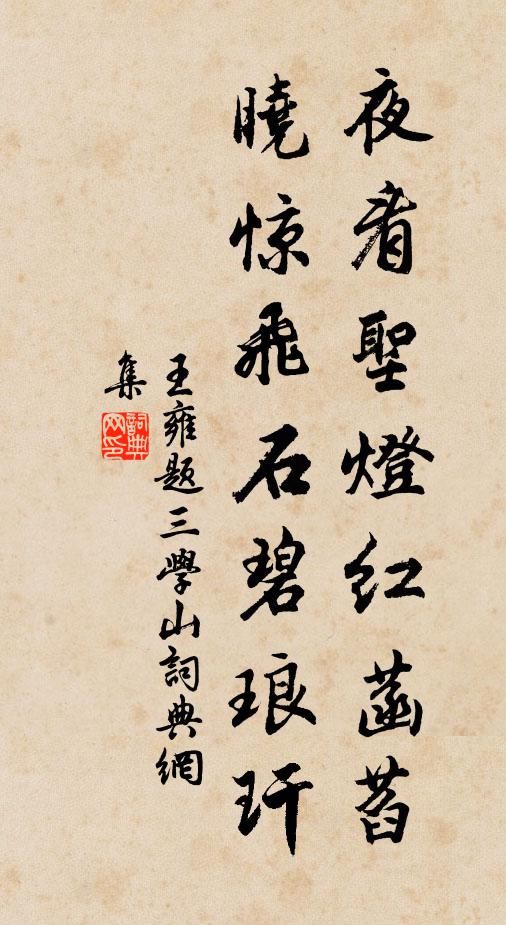 夜看聖燈紅菡萏
曉惊飛石碧琅玕
王雍題三學山詞典網
集
詞典網印